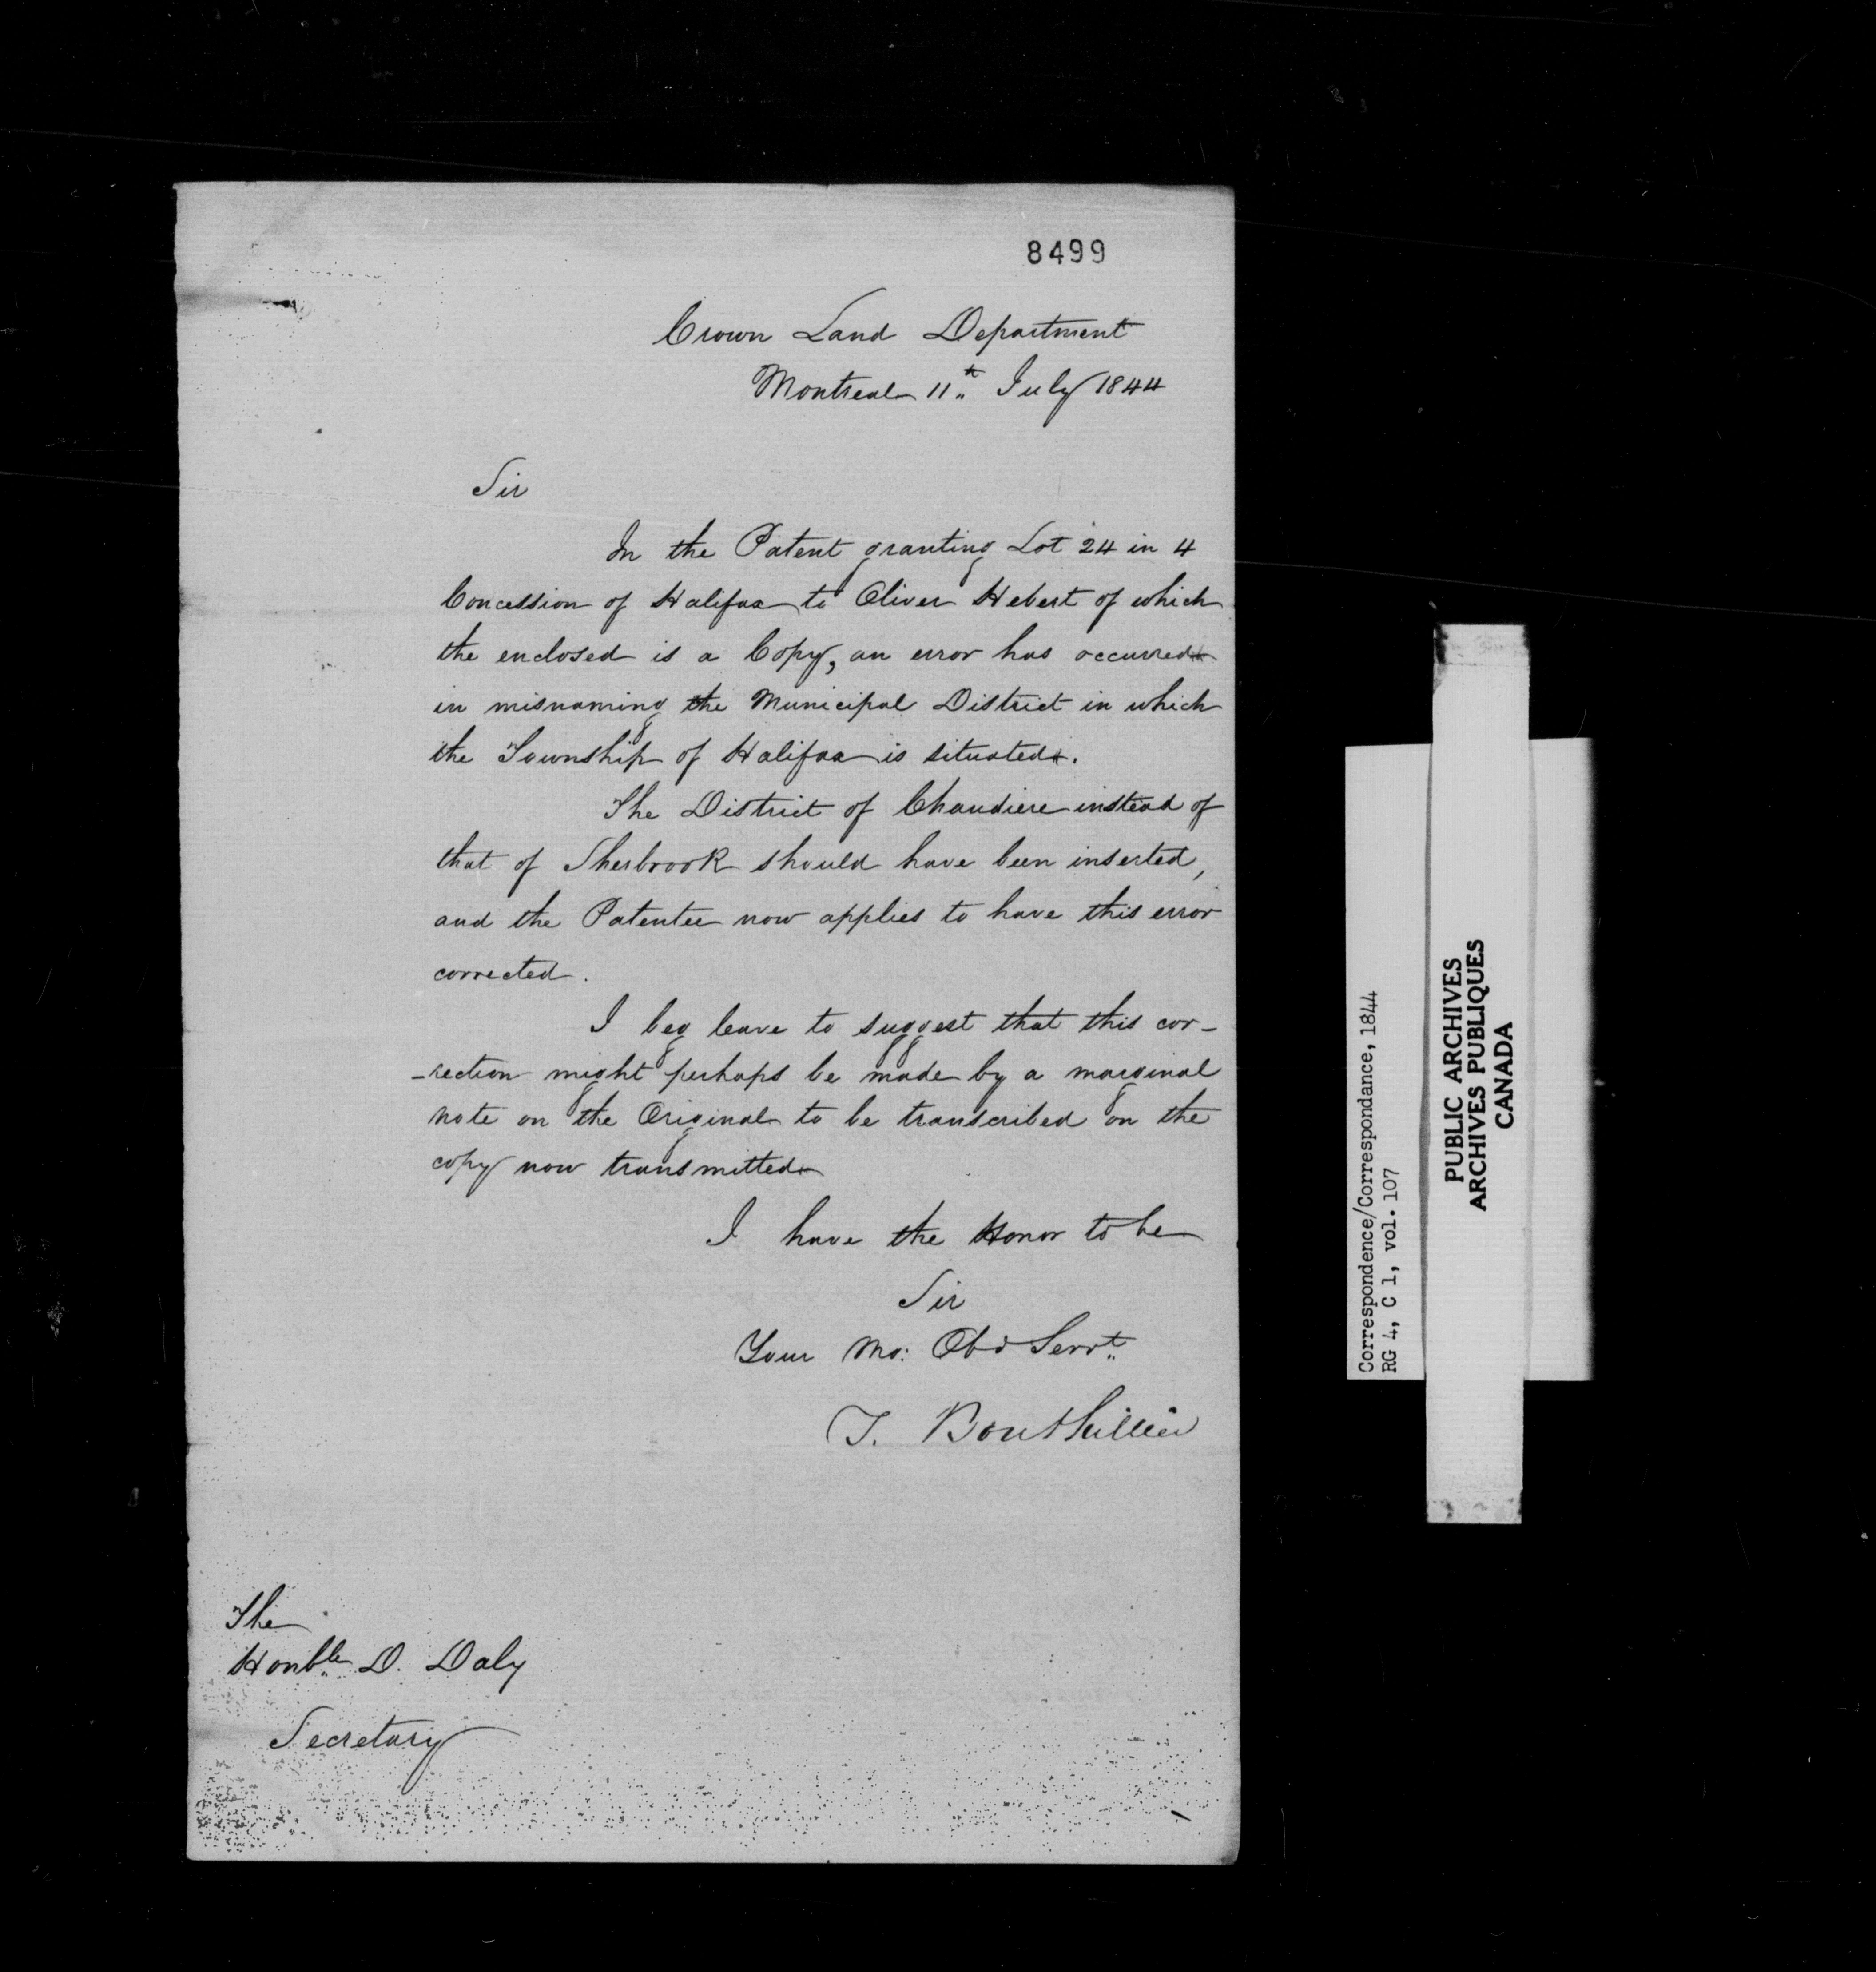 8499
Crown Land Department
Montreal 11th July 1844
Sir
In the Patent granting Lot 24 in 4
Concession of Halifax to Oliver Hebert of which
the enclosed is a Copy, an error has occurred
in misnaming the Municipal District in which
the Township of Halifax is situated.
The District of Chaudiere instead of
that of Sherbrook should have been inserted,
and the Patentee now applies to have this error
corrected.
I beg leave to suggest that this cor-
-rection might perhaps be made by a marginal
note on the Original to be transcribed on the
copy now transmitted
I have the Honor to be
Sir
Your Mo: Obd Servt.
T. Bouthillier
The
Honble D. Daly
Secretary
Correspondence/Correspondance, 1844
RG 4, C 1, vol. 107
PUBLIC ARCHIVES
ARCHIVES PUBLIQUES
CANADA